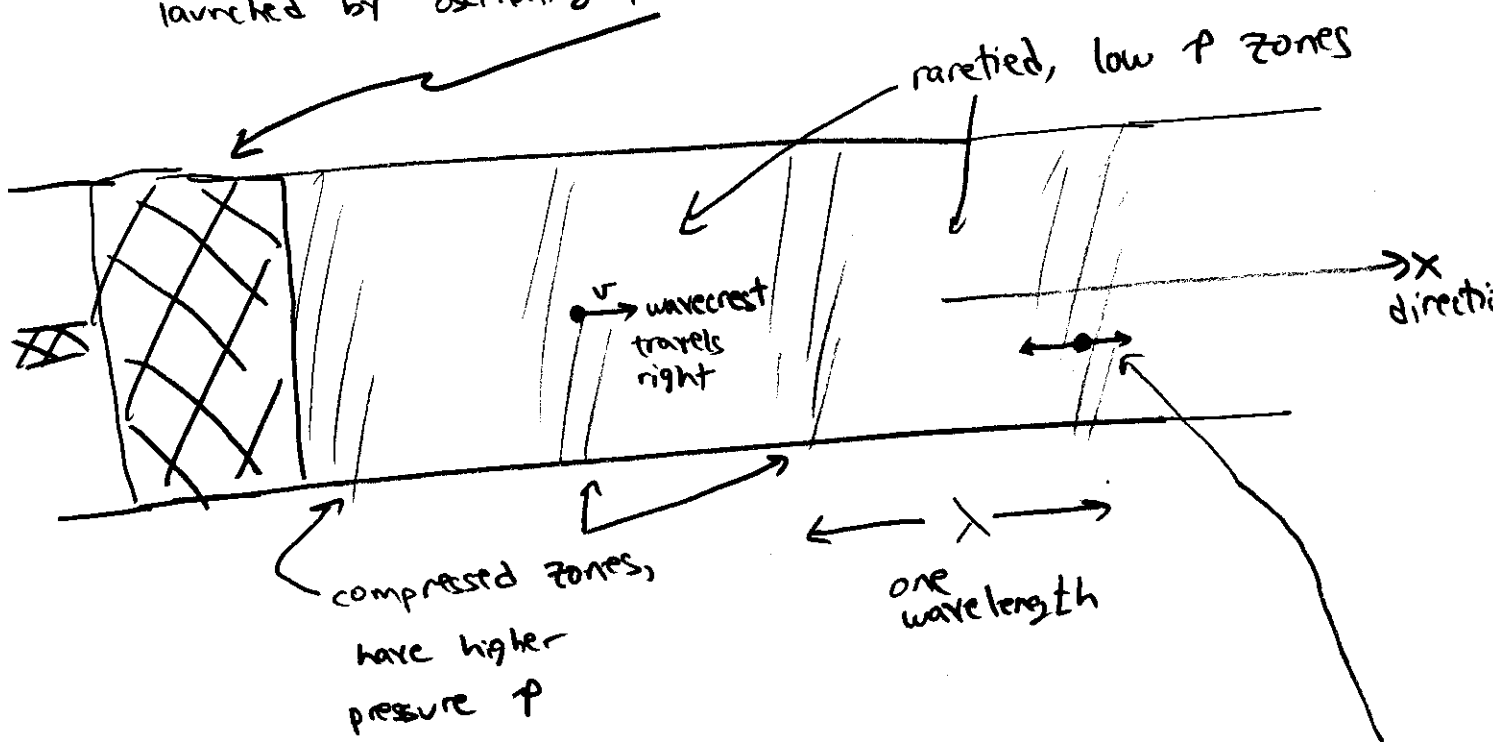 launched by
rarefied, low P zones
v
wavecrest
travels
right
x
compressed zones,
have higher
pressure P
λ
one
wavelength